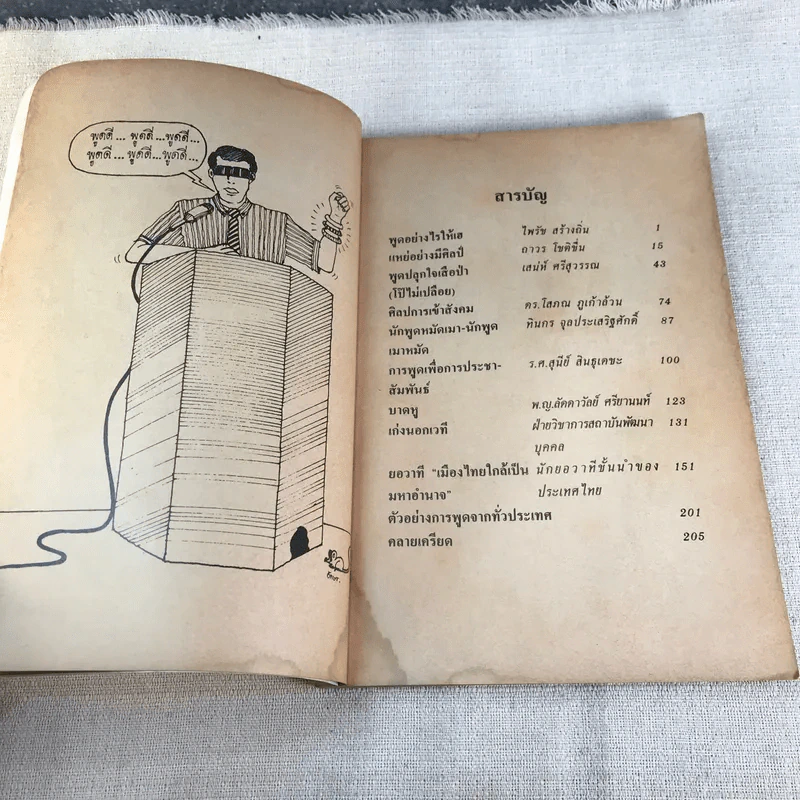 พูดดี... พูดดี...พูดดี...
พูดดี... พูดดี...พูดดี...
สารบัญ
พูดอย่างไรให้เฮ ไพรัช สร้างถิ่น 1
แหย่อย่างมีศิลป์ ถาวร โชติชื่น 15
พูดปลุกใจเสือป่า เสน่ห์ ศรีสุวรรณ 43
(โป๊ไม่เปลือย)
ศิลปการเข้าสังคม ดร.โสภณ ภูเก้าล้วน 74
นักพูดหมัดเมา-นักพูด ทินกร จุลประเสริฐศักดิ์ 87
เมาหมัด
การพูดเพื่อการประชา- ร.ศ.สุนีย์ สินธุเดชะ 100
สัมพันธ์
บาดหู พ.ญ.ลัดดาวัลย์ ศรียานนท์ 123
เก่งนอกเวที ฝ่ายวิชาการสถาบันพัฒนา 131
บุคคล
ยอวาที "เมืองไทยใกล้เป็น นักยอวาทีชั้นนำของ 151
มหาอำนาจ" ประเทศไทย
ตัวอย่างการพูดจากทั่วประเทศ 201
คลายเครียด 205